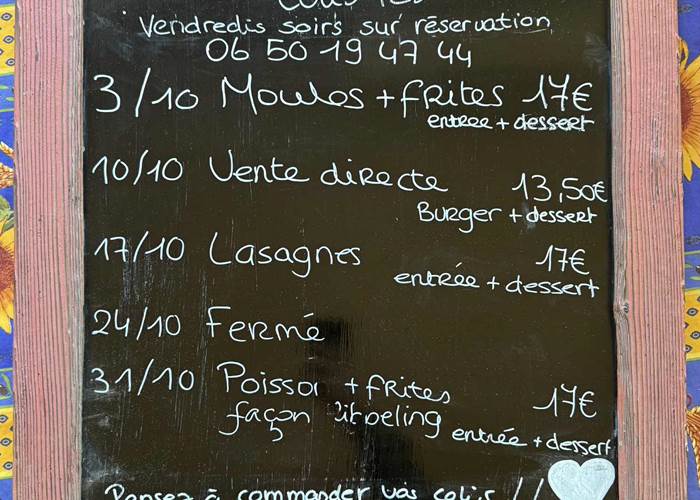 Vendredis soirs sur réservation
06 50 19 47 44
3/10 Moules + frites 17€
entrée + dessert
10/10 Vente directe 13,50€
Burger + dessert
17/10 Lasagnes 17€
entrée + dessert
24/10 Fermé
31/10 Poisson + frites 17€
façon Kitbeling entrée + dessert
Pensez à commander vos colis !!